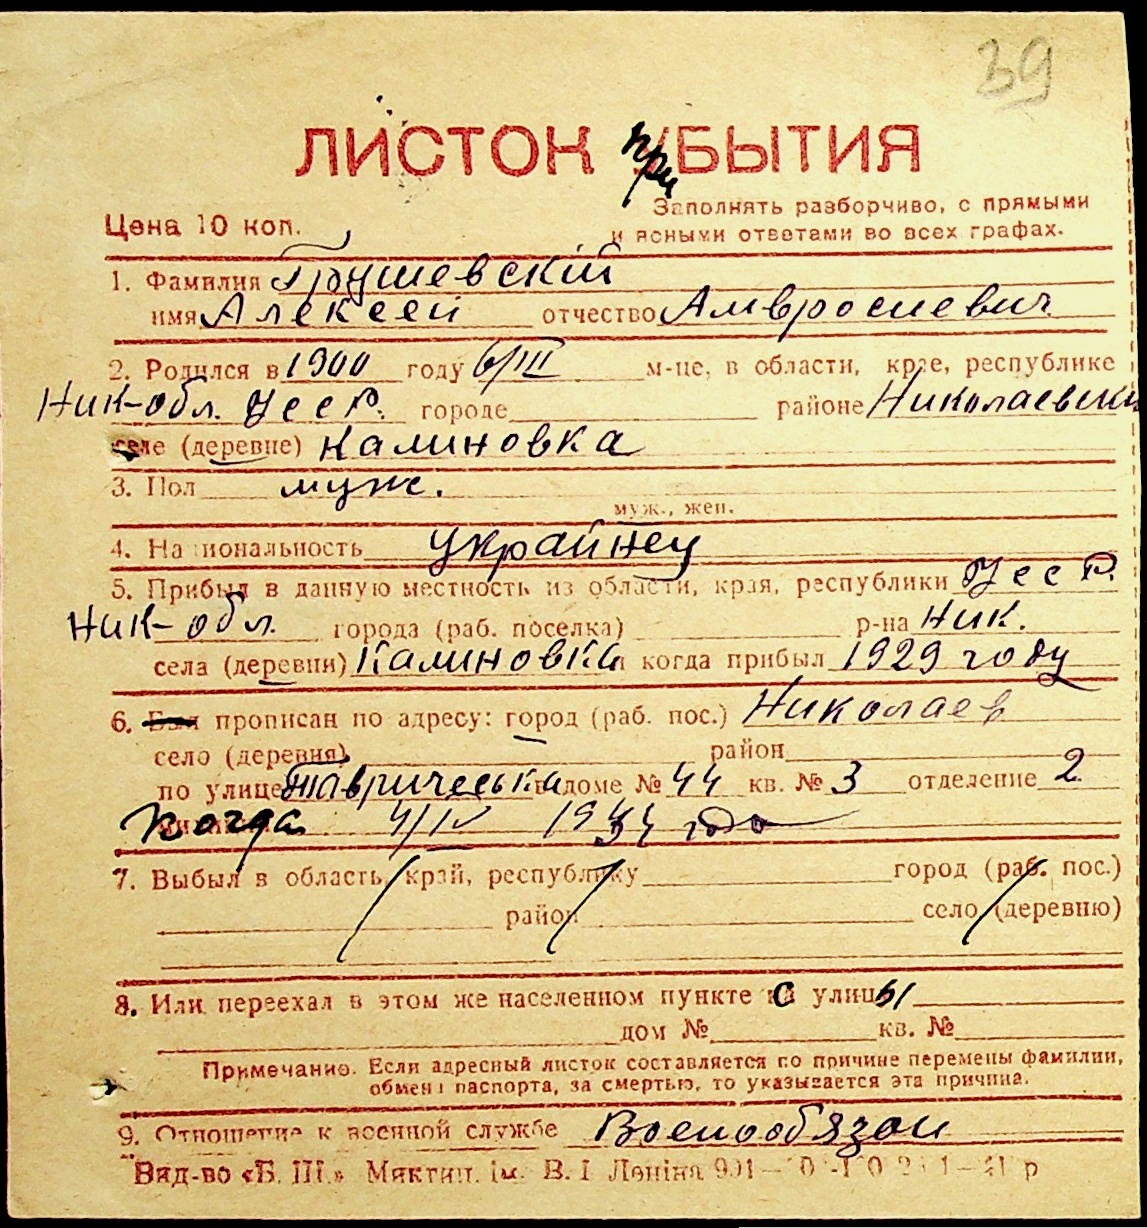 39
ЛИСТОК При УБЫТИЯ
Цена 10 коп.
Заполнять разборчиво, с прямыми
и ясными ответами во всех графах.
1. Фамилия Грушевскій
имя Алексей отчество Амвросиевич
2. Родился в 1900 году 6/III м-це, в области, крае, республике
Ник-обл. УССР. городе районе Николаевски
селе (деревне) Калиновка
3. Пол муж.
муж., жен.
4. Национальность украйнец
5. Прибыл в данную местность из области, края, республики УССР.
Ник-обл. города (раб. поселка) р-на Ник.
села (деревни) Калиновка когда прибыл 1929 году
6. Был прописан по адресу: город (раб. пос.) Николаев
село (деревня) район
по улице Тавричеська в доме № 44 кв. № 3 отделение 2
Когда 4/IV года
7. Выбыл в область, край, республику город (раб. пос.)
район село (деревню)
8. Или переехал в этом же населенном пункте с улицы
дом № кв. №
Примечание. Если адресный листок составляется по причине перемены фамилии,
обмена паспорта, за смертью, то указывается эта причина.
9. Отношение к военной службе Военообязан
Вид-во «Б. Ш.» Микт ім. В. І Леніна